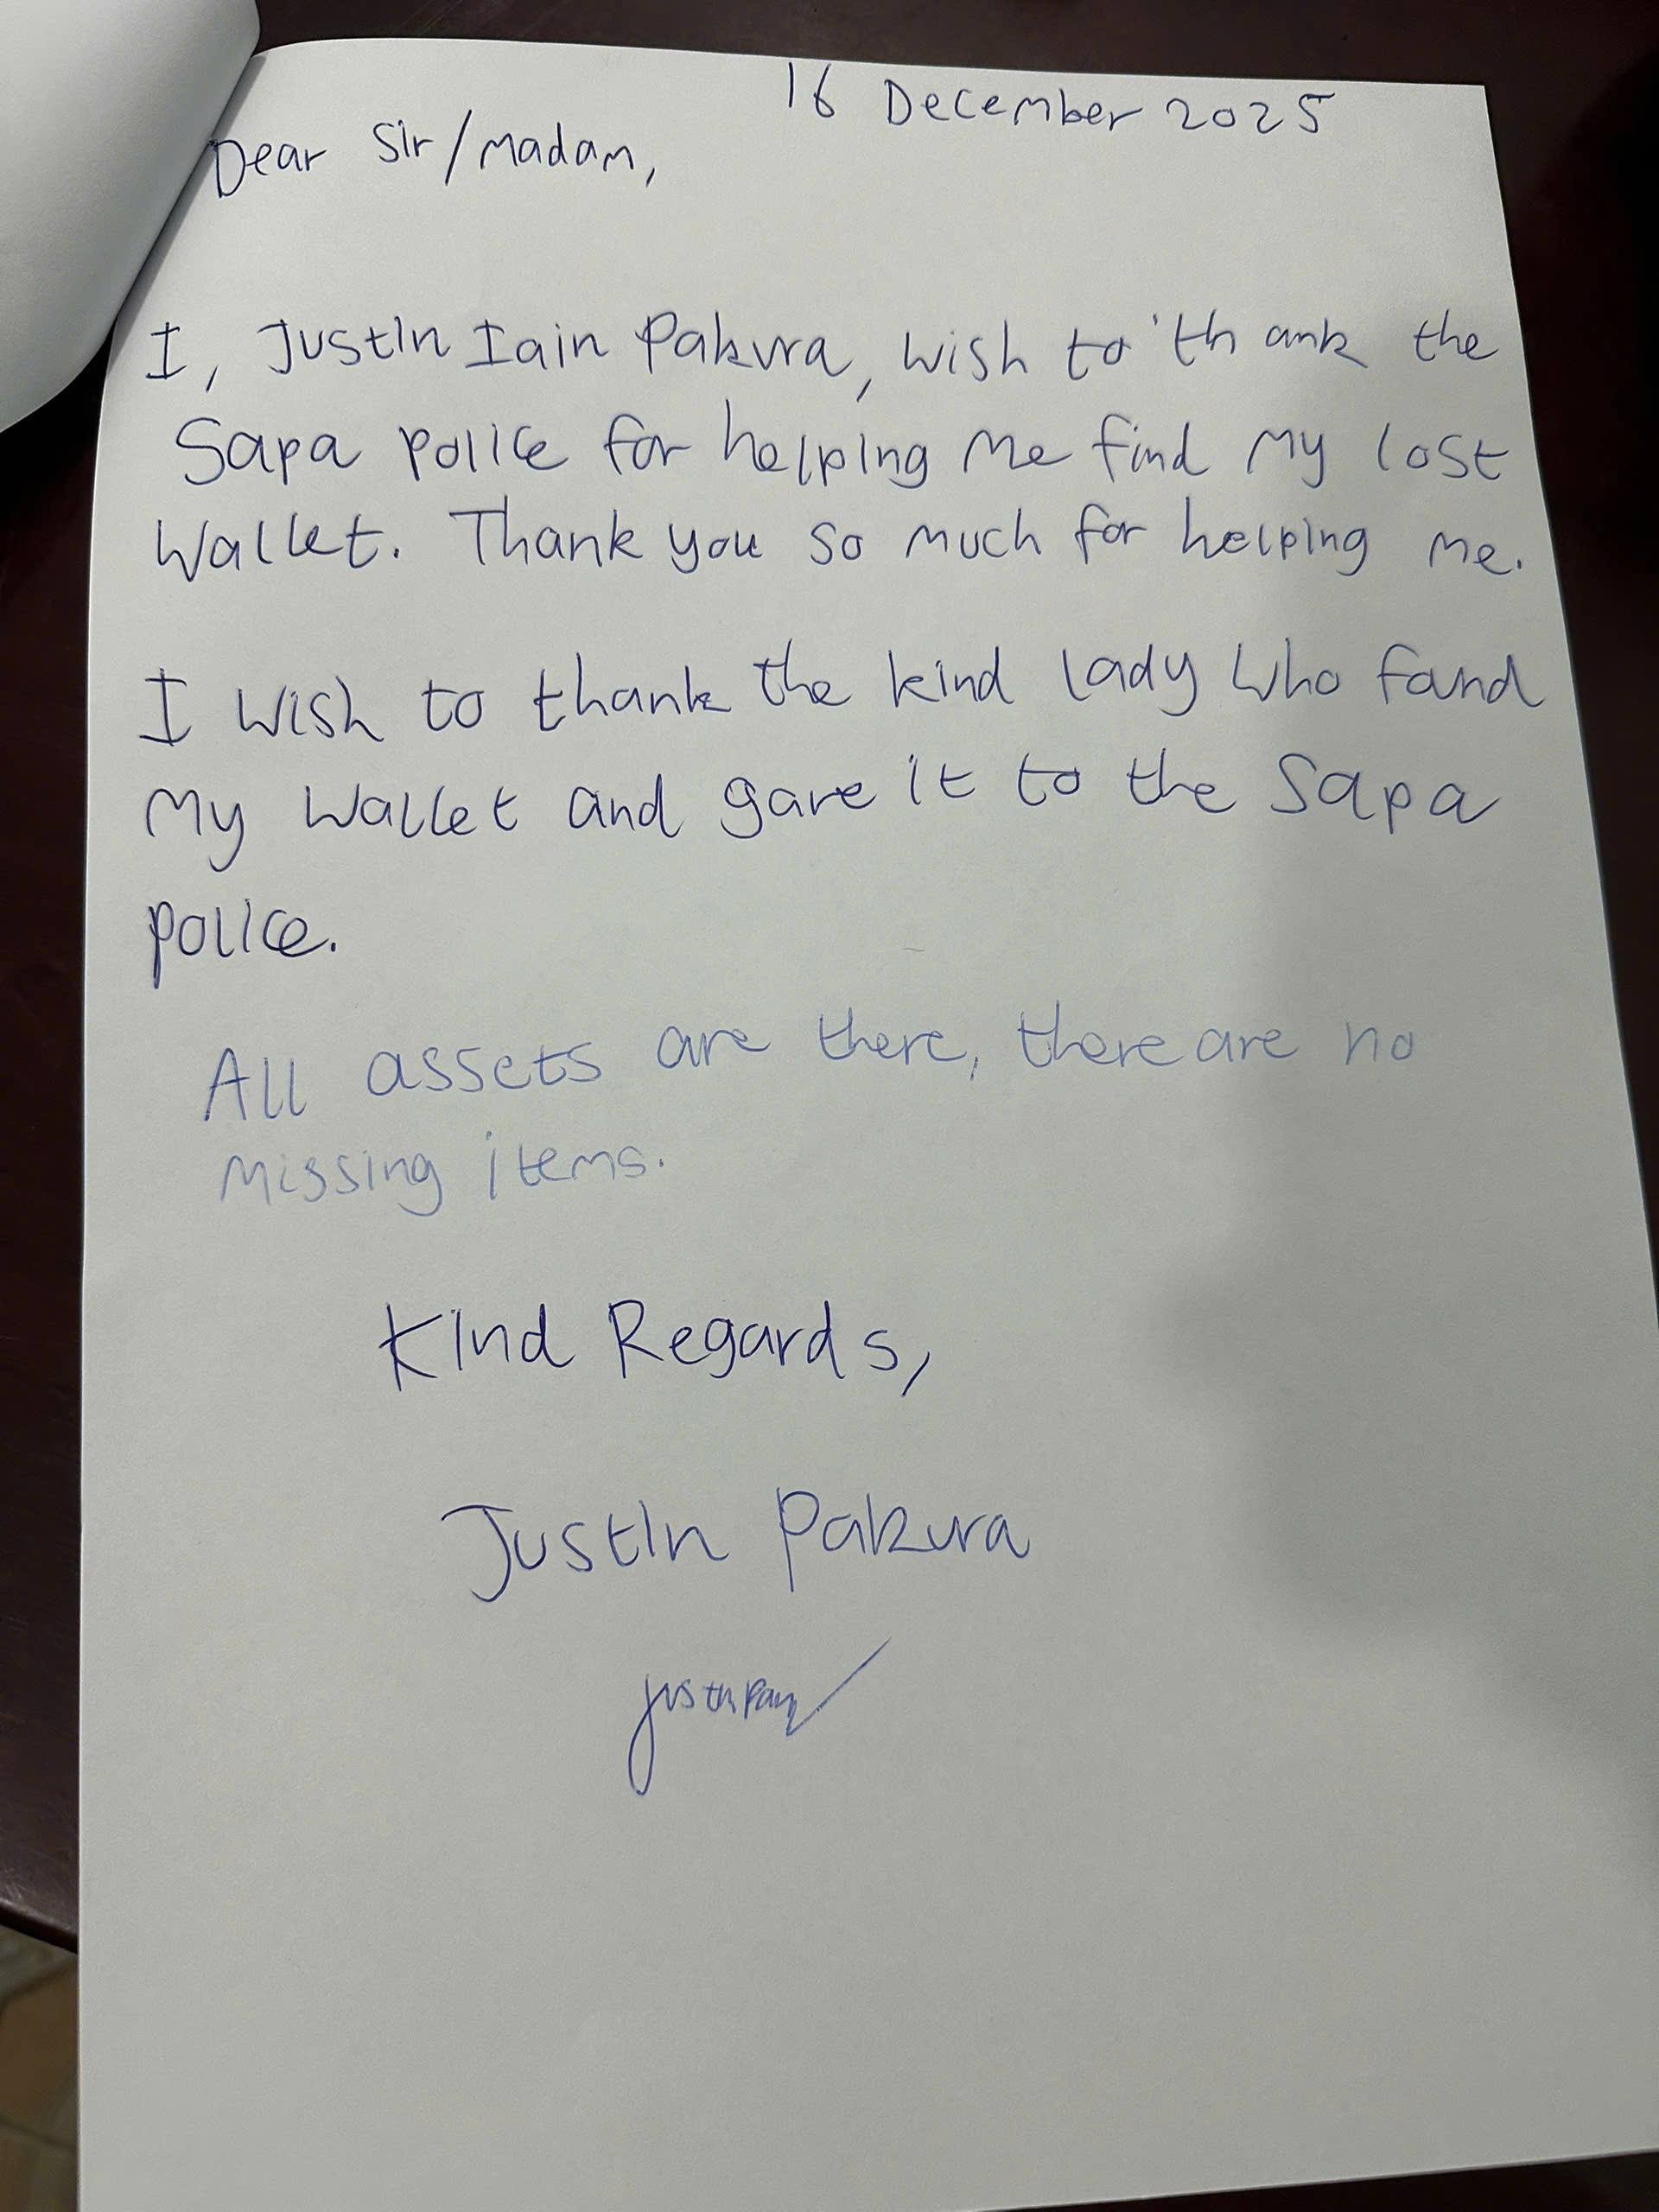 16 December 2025
Dear Sir/Madam,
I, Justin Iain Pakura, wish to thank the
Sapa police for helping me find my lost
Wallet. Thank you so much for helping me.
I wish to thank the kind lady who found
my wallet and gave it to the Sapa
police.
All assets are there, there are no
missing items.
Kind Regards,
Justin Pakura